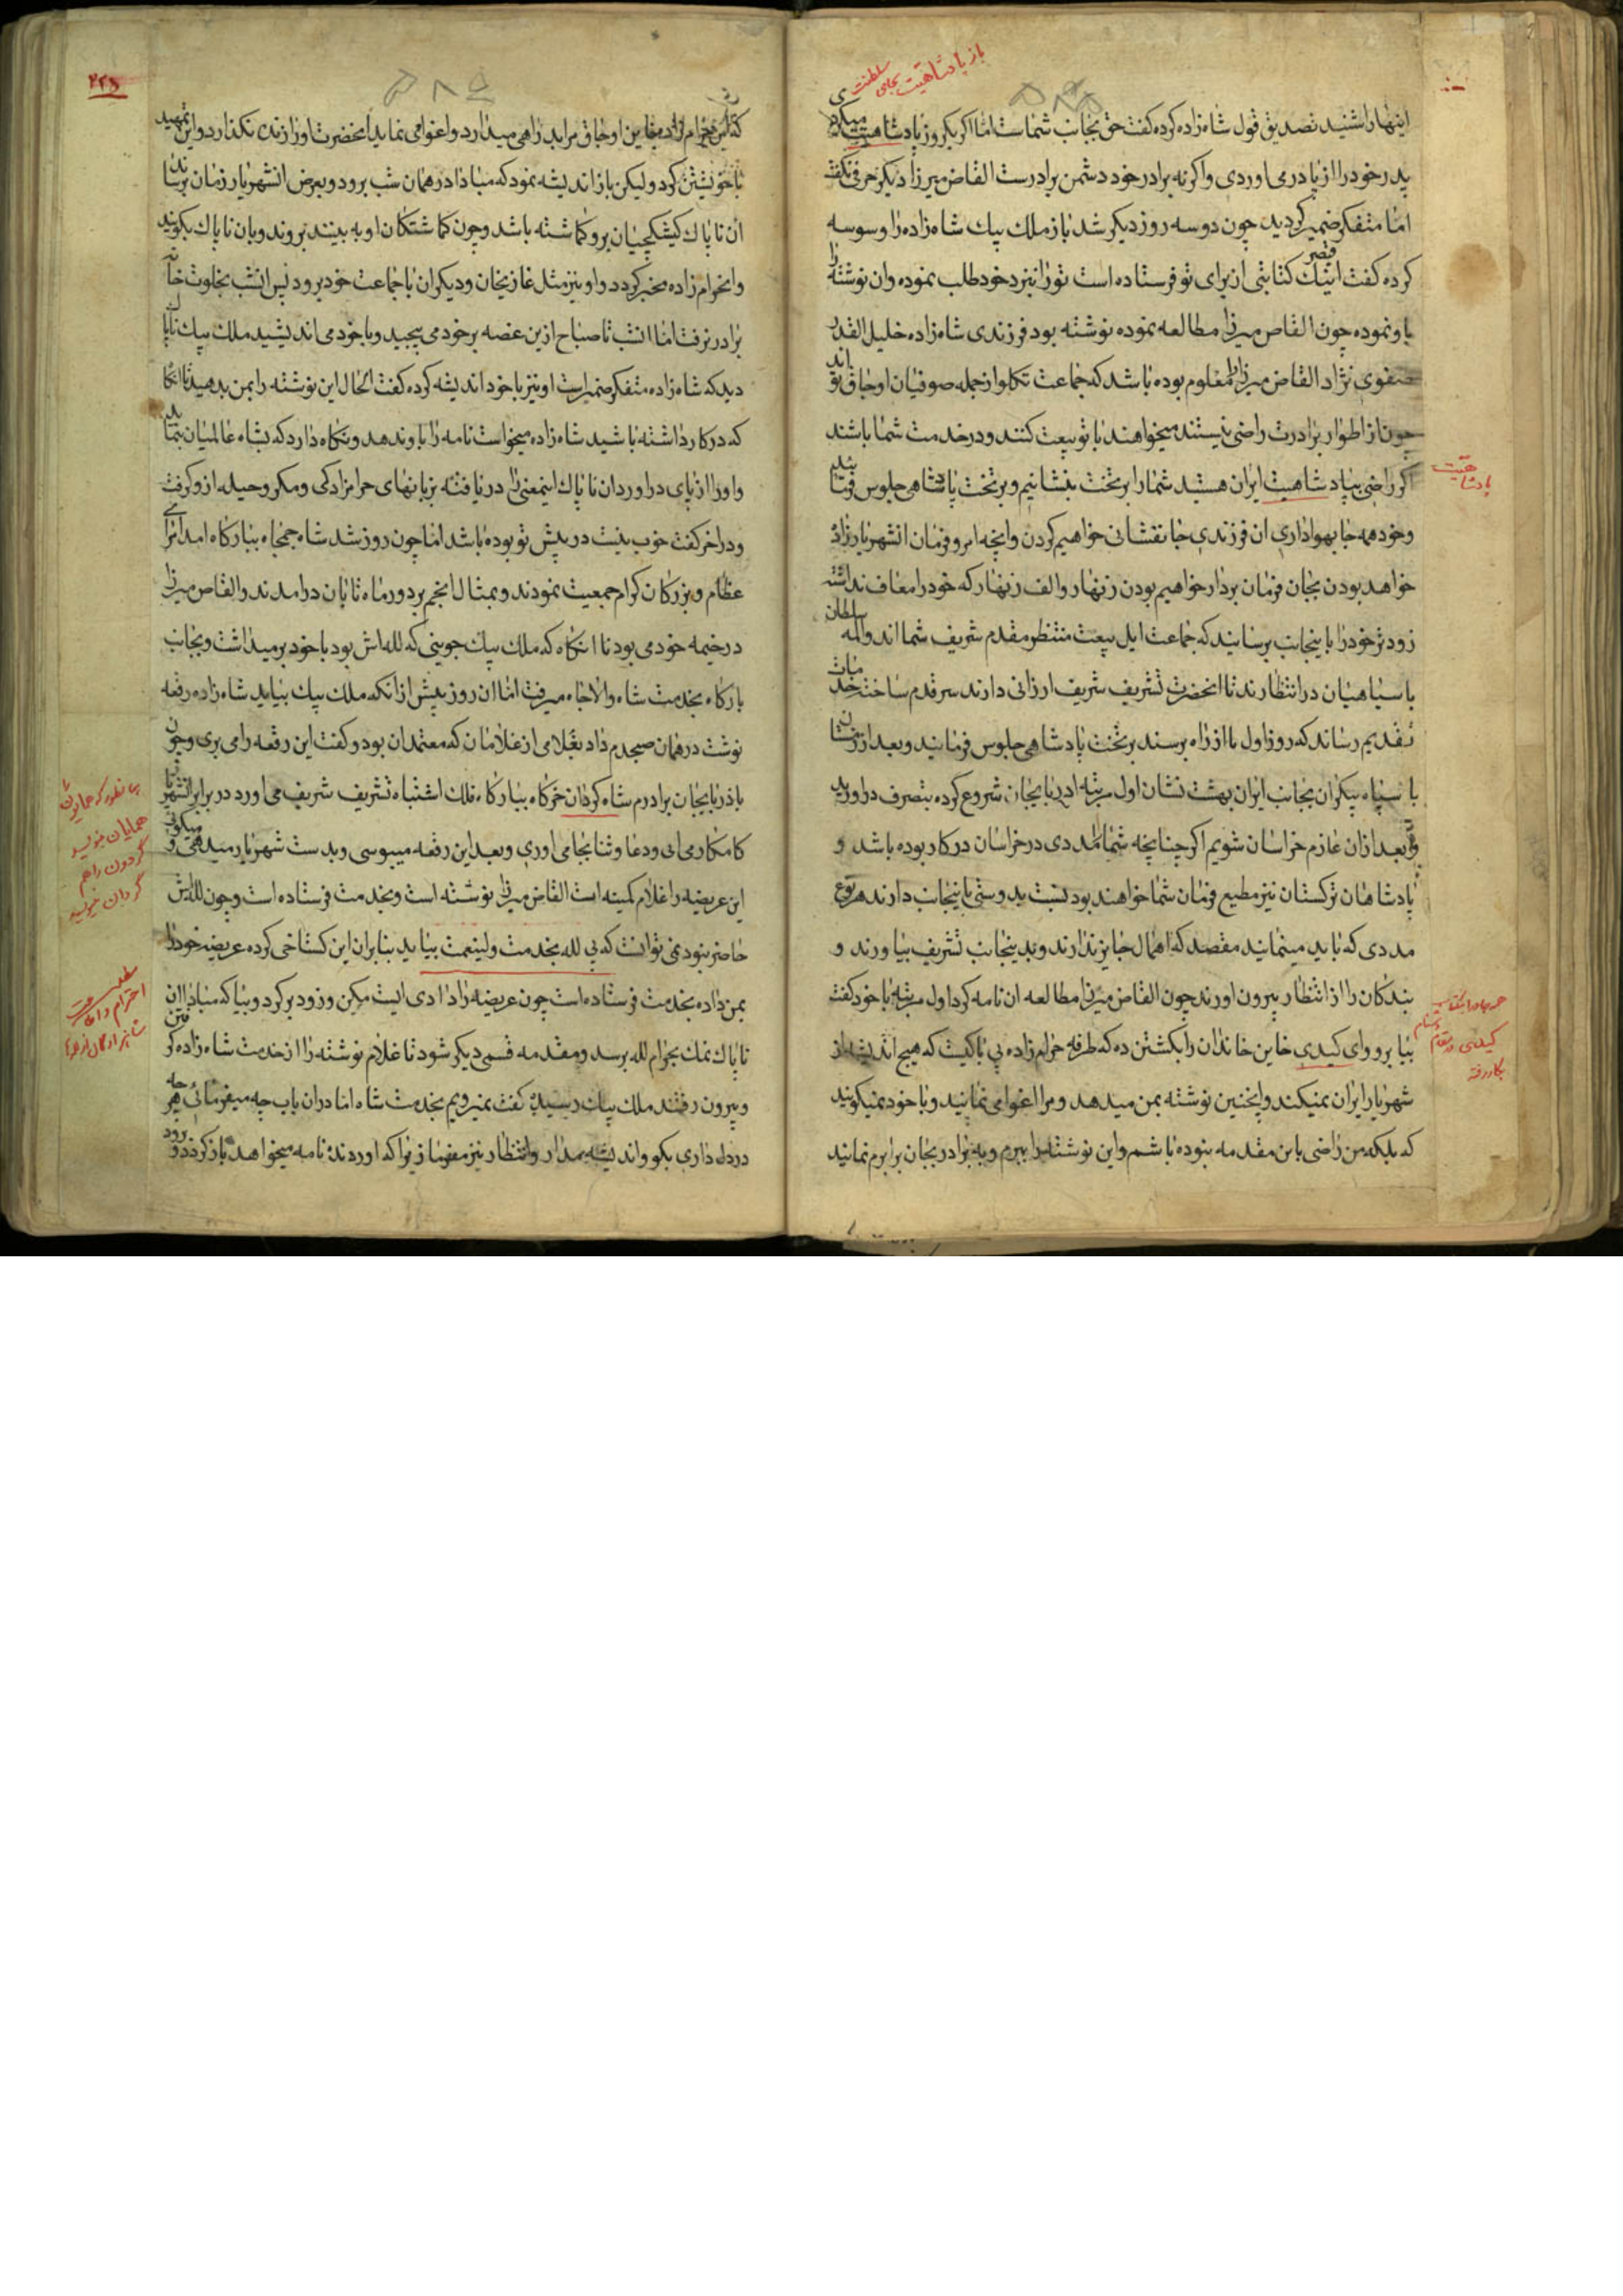 باز پادشاهیت بجای سلطنت
اینها را شنید تصدیق قول شاه زاده کرده کفت حق بجانب شماست اما اکر یکروز پادشاهیت میکردی
پدر خود را از پا درمی اوردی واکرنه برادر خود دشمن برادرست القاص میرزا دیکر حرفی نکفت
اما متفکر ضمیر کردید چون دو سه روز دیکر شد باز ملک پیک شاه زاده را وسوسه
کرده کفت اینک قیصر کتابتی از برای تو فرستاده است تو را بنزد خود طلب نموده وان نوشته را
باو نموده چون القاص میرزا مطالعه نموده نوشته بود فرزندی شاه زاده خلیل القدر
صفوی نژاد القاص میرزا معلوم بوده باشد که جماعت تکلو از جمله صوفیان اوجاق تو اند
چون از اطوار برادرت راضی نیستند میخواهند با تو بیعت کنند و در خدمت شما باشند
اکر راضی بپادشاهیت ایران هستید شما را بر تخت بنشانیم و بر تخت پادشاهی جلوس فرمایید
پادشاهیت
وخود همه جا بهواداری ان فرزندی جانفشانی خواهیم کردن وانچه امر و فرمان انشهریارزاده
خواهد بودن بجان فرمان بردار خواهیم بودن زنهار والف زنهار که خود را معاف نداشته
زودتر خود را باینجانب برسانید که جماعت ایل بیعت منتظر مقدم شریف شما اند والمه سلطان
با سپاهیان در انتظارند تا انحضرت تشریف شریف ارزانی دارند سر قدم ساخته خدمات
بتقدیم رساند که روز اول تا از راه برسند بر تخت پادشاهی جلوس فرمایند و بعد از زمستان
با سپاه بیکران بجانب ایران بهشت نشان اول مرتبه اذربایجان شروع کرده بتصرف دراورید
و بعد ازان عازم خراسان شویم اکر چنانچه شما را مددی در خراسان در کار بوده باشد و
پادشاهان ترکستان نیز مطیع فرمان شما خواهند بود نسبت بدوستی باینجانب دارند هر نوع
مددی که باید مینمایند مقصد که اهمال جایز ندارند و بدینجانب تشریف بیاورند و
بندکان را از انتظار بیرون اورند چون القاص میرزا مطالعه ان نامه کرد اول مرتبه با خود کفت
بیا برو وای کیدی خاین خاندان را بکشتن ده که طرفه حرام زاده بی باکیست که هیچ اندیشه از
شهریار ایران نمیکند واینچنین نوشته بمن میدهد و مرا اغوا می نمایند و با خود نمیکویند
که بلکه من راضی باین مقدمه نبوده باشم واین نوشته را ببرم و به برادر بجان برابرم نمایند
۲۲۵
با خویشتن کرد ولیکن باز اندیشه نمود که مبادا در همان شب برود و بعرض انشهریار زمان برساند
ان ناپاک کیشکچیان برو کماشته باشد و چون کماشتکان او به بینند بروند و بان ناپاک بکویند
وانحرام زاده مخبر کردد و او نیز مثل غازیخان ودیکران با جماعت خود برود پس انشب بخلوت خاص
برادر نرفت اما انشب تا صباح ازین غصه بر خود می پیچید و با خود می اندیشید ملک پیک ناپاک
دید که شاه زاده متفکر ضمیر است او نیز با خود اندیشه کرده کفت الحال این نوشته را بمن بدهید
که در کار داشته باشید شاه زاده میخواست نامه را باو ندهد و نکاه دارد که بشاه عالمیان بنماید
و او را از پای دراوردان ناپاک اینمعنی را دریافته بزبانهای حرامزادکی ومکر وحیله ازو کرفت
ودر اخر کفت خوب نیست در پیش تو بوده باشد اما چون روز شد شاه جمجاه ببارکاه امد امرای
عظام وبزرکان کرام جمعیت نمودند وبمثال انجم بر دور ماه تابان درامدند والقاص میرزا
در خیمه خود می بود تا انکاه که ملک پیک جوینی که لله اش بود با خود برمیداشت و بجانب
بارکاه بخدمت شاه والاجاه میرفت اما ان روز پیش از انکه ملک پیک بیاید شاه زاده رقعه
نوشت در همان صبحدم داد بغلامی از غلامان که معتمدان بود و کفت این رقعه را می بری وچون
باذربایجان برادرم شاه کردان خرکاه ببارکاه فلک اشتباه تشریف شریف می اورد در برابر انشهریار
کامکار می ایی ودعا وثنا بجا می اوری وبعد این رقعه میبوسی و بدست شهریار میدهی و میکویی
این عریضه را غلام کمینه است القاص میرزا نوشته است وبخدمت فرستاده است وچون لله اش
حاضر نبود نمی توانست که بی لله بخدمت ولینعمت بیاید بنابران این کستاخی کرده عریضه خود را
بمن داده بخدمت فرستاده است چون عریضه را دادی ایست مکن وزود برکرد وبیا که مبادا ان
ناپاک نمک بحرام لله برسد ومقدمه قسمی دیکر شود تا غلام نوشته را از خدمت شاه زاده کرفتن
وبیرون رفتند ملک پیک رسید کفت نمیرویم بخدمت شاه اما دران باب چه میفرمایی هر چه
در دل داری بکو واندیشه مدار وانتظار نیز مفرما زیرا که اورنده نامه میخواهد بازکردد و برود